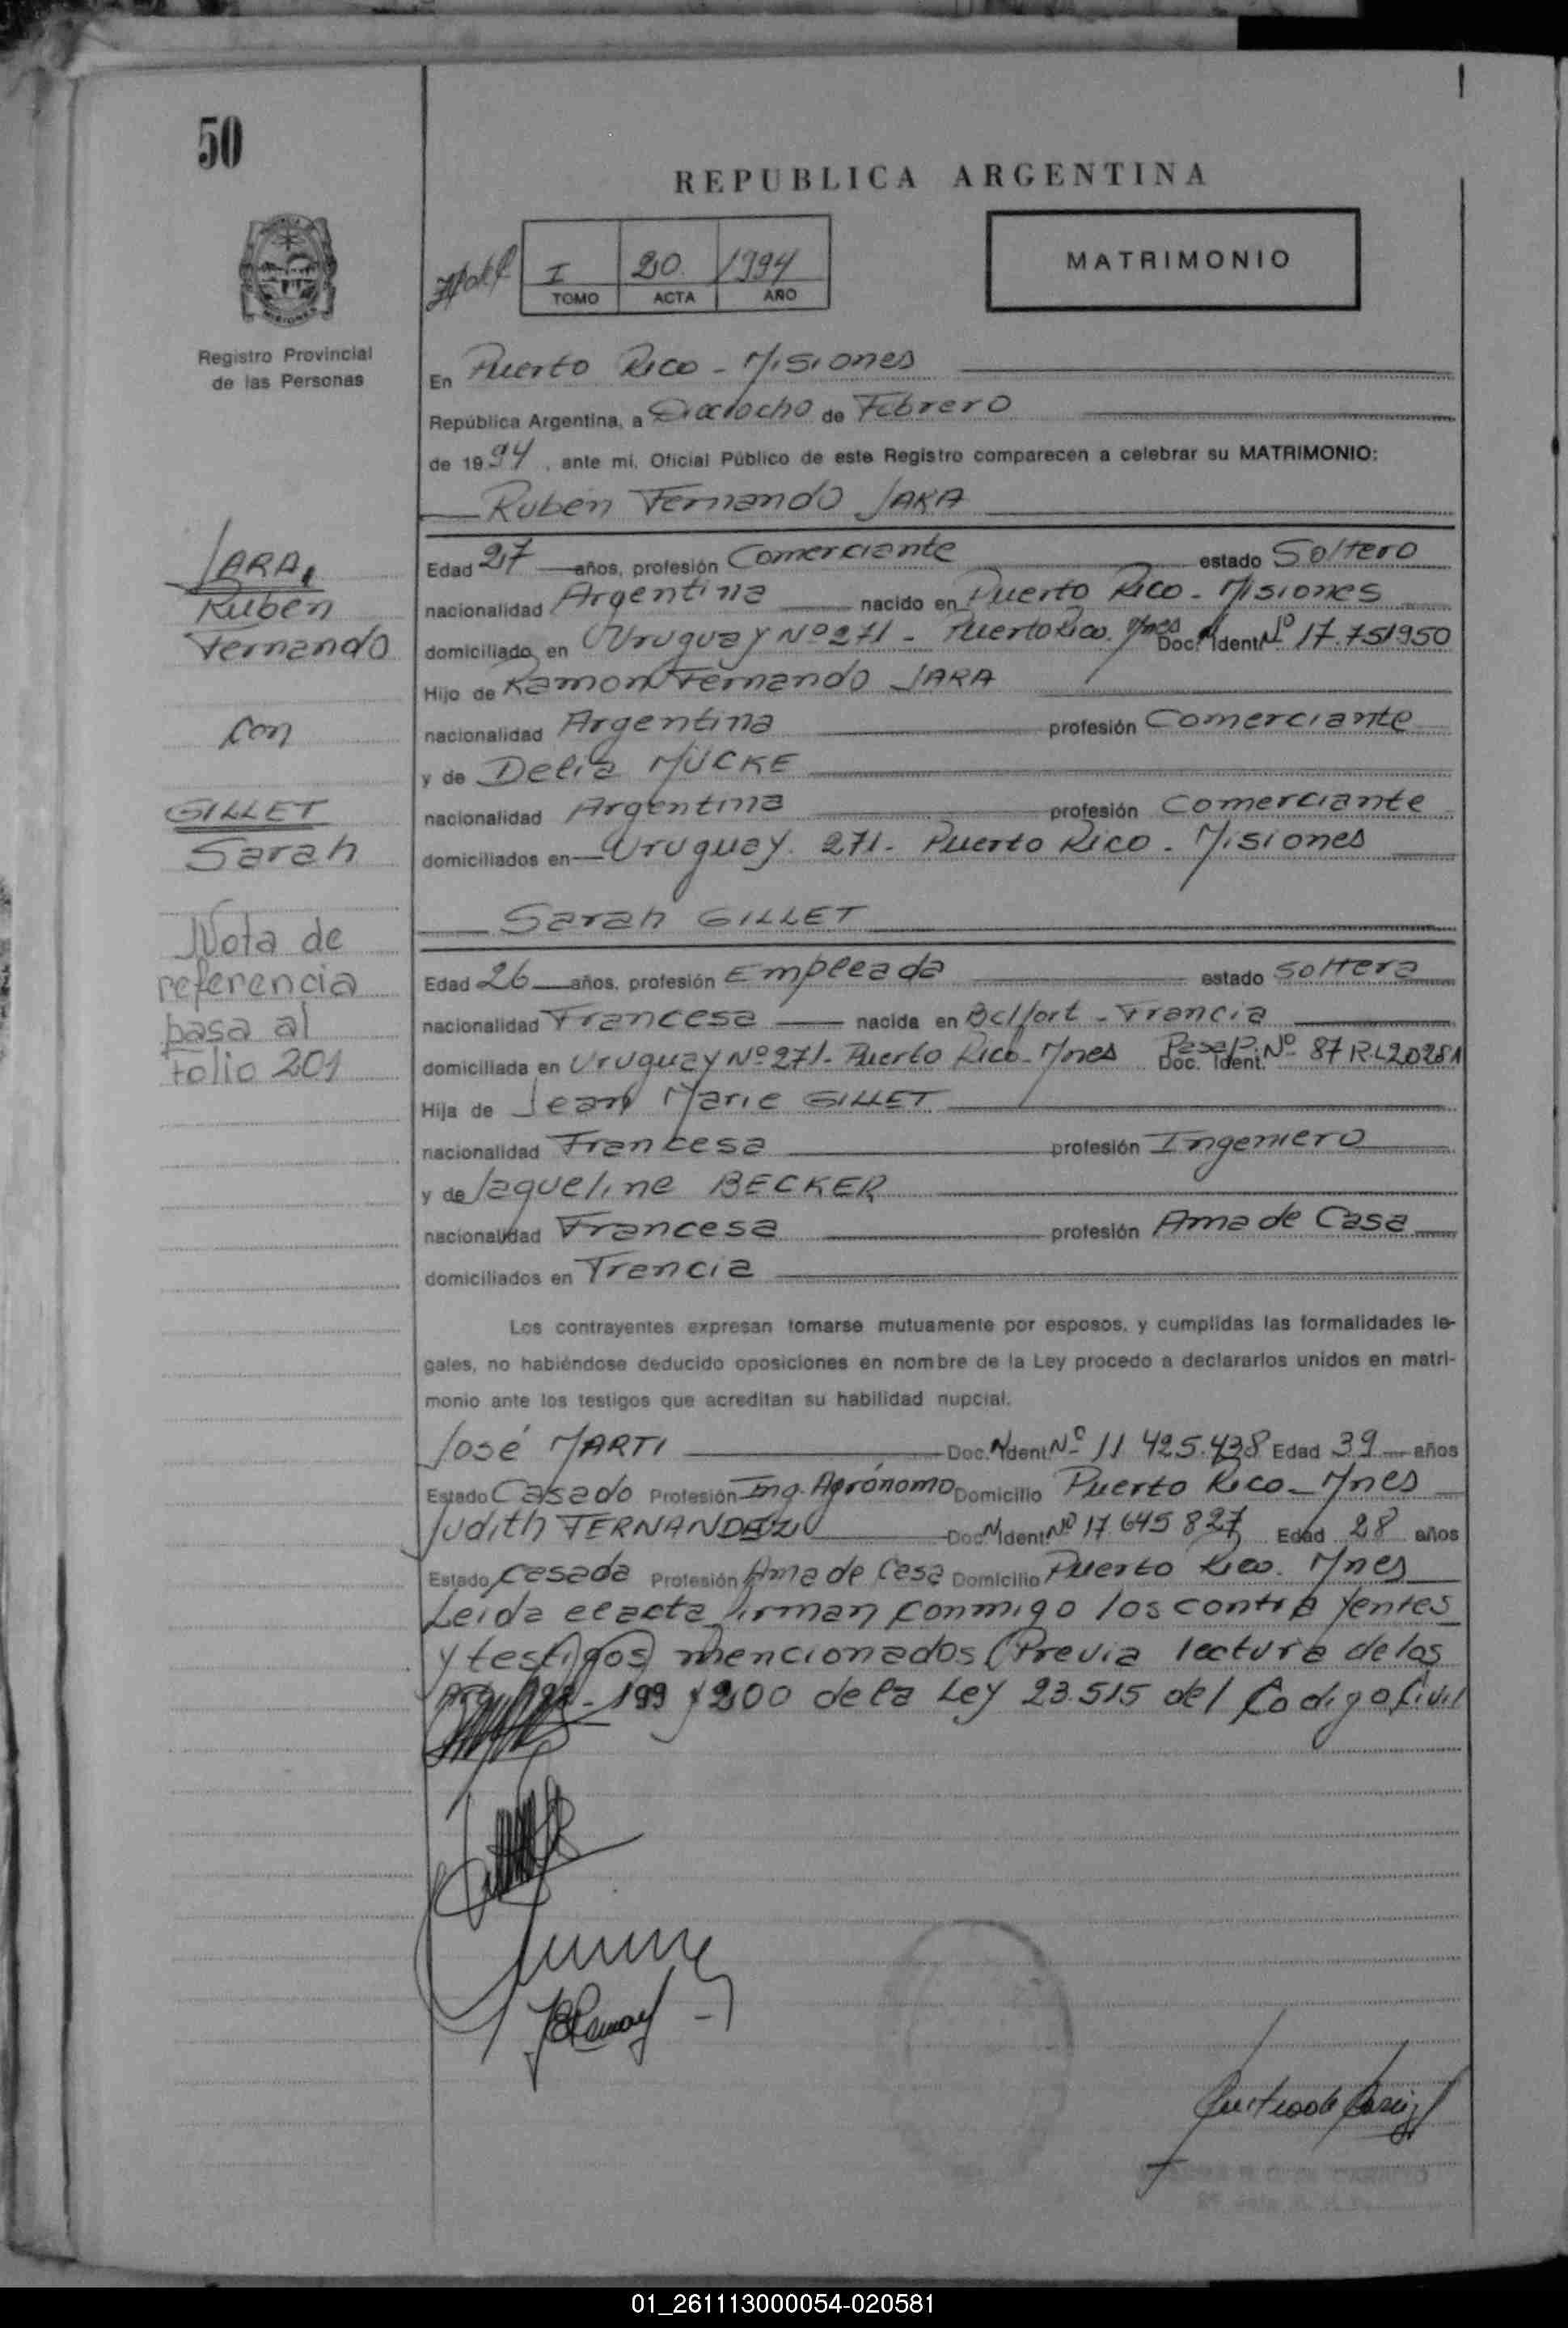 50
REPUBLICA ARGENTINA
MISIONES
Registro Provincial
de las Personas
I 20. 1994
TOMO ACTA AÑO
MATRIMONIO
En Puerto Rico - Misiones
República Argentina, a Dieciocho de Febrero
de 1994, ante mi, Oficial Público de este Registro comparecen a celebrar su MATRIMONIO:
Rubén Fernando JARA
JARA,
Rubén
Fernando
con
GILLET
Sarah
Nota de
referencia
pasa al
Folio 201
Edad 27 años, profesión Comerciante estado Soltero
nacionalidad Argentina nacido en Puerto Rico - Misiones
domiciliado en Uruguay Nº 271 - Puerto Rico. Mnes Doc. N. Ident. Nº 17.751950
Hijo de Ramón Fernando JARA
nacionalidad Argentina profesión Comerciante
y de Delia MÜCKE
nacionalidad Argentina profesión Comerciante
domiciliados en Uruguay. 271 - Puerto Rico - Misiones
Sarah GILLET
Edad 26 años, profesión Empleada estado soltera
nacionalidad Francesa nacida en Belfort - Francia
domiciliada en Uruguay Nº 271 - Puerto Rico - Mnes Pasap. Doc. Ident. Nº 87 RL20281
Hija de Jean Marie GILLET
nacionalidad Francesa profesión Ingeniero
y de Jaqueline BECKER
nacionalidad Francesa profesión Ama de Casa
domiciliados en Francia
Los contrayentes expresan tomarse mutuamente por esposos, y cumplidas las formalidades le-
gales, no habiéndose deducido oposiciones en nombre de la Ley procedo a declararlos unidos en matri-
monio ante los testigos que acreditan su habilidad nupcial.
José MARTI Doc. N. Ident. Nº 11.425.438 Edad 39 años
Estado Casado Profesión Ing. Agrónomo Domicilio Puerto Rico - Mnes
Judith FERNANDEZ Doc. N. Ident. Nº 17.645.827 Edad 28 años
Estado Casada Profesión Ama de Casa Domicilio Puerto Rico. Mnes
Leída el acta firman conmigo los contrayentes
y testigos mencionados (Previa lectura de los
199 y 200 de la Ley 23.515 del Codigo Civil
01_261113000054-020581